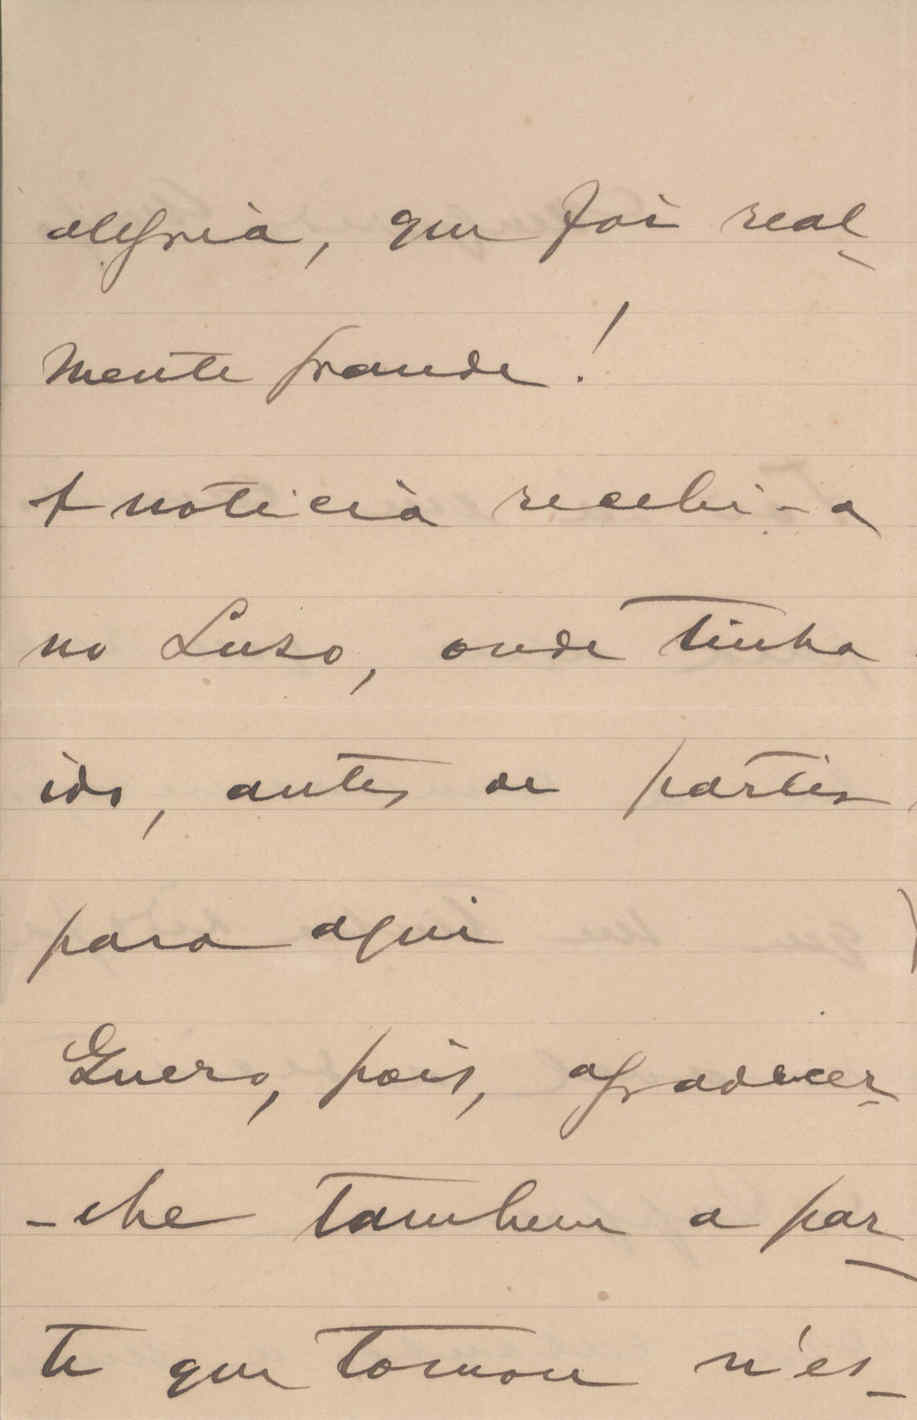 alegria, que foi real-
mente grande!
A noticia recebi-a
no Luso, onde tinha
ido, antes de partir
para aqui
Quero, pois, agradecer-
-lhe tambem a par-
te que tomou n'es-